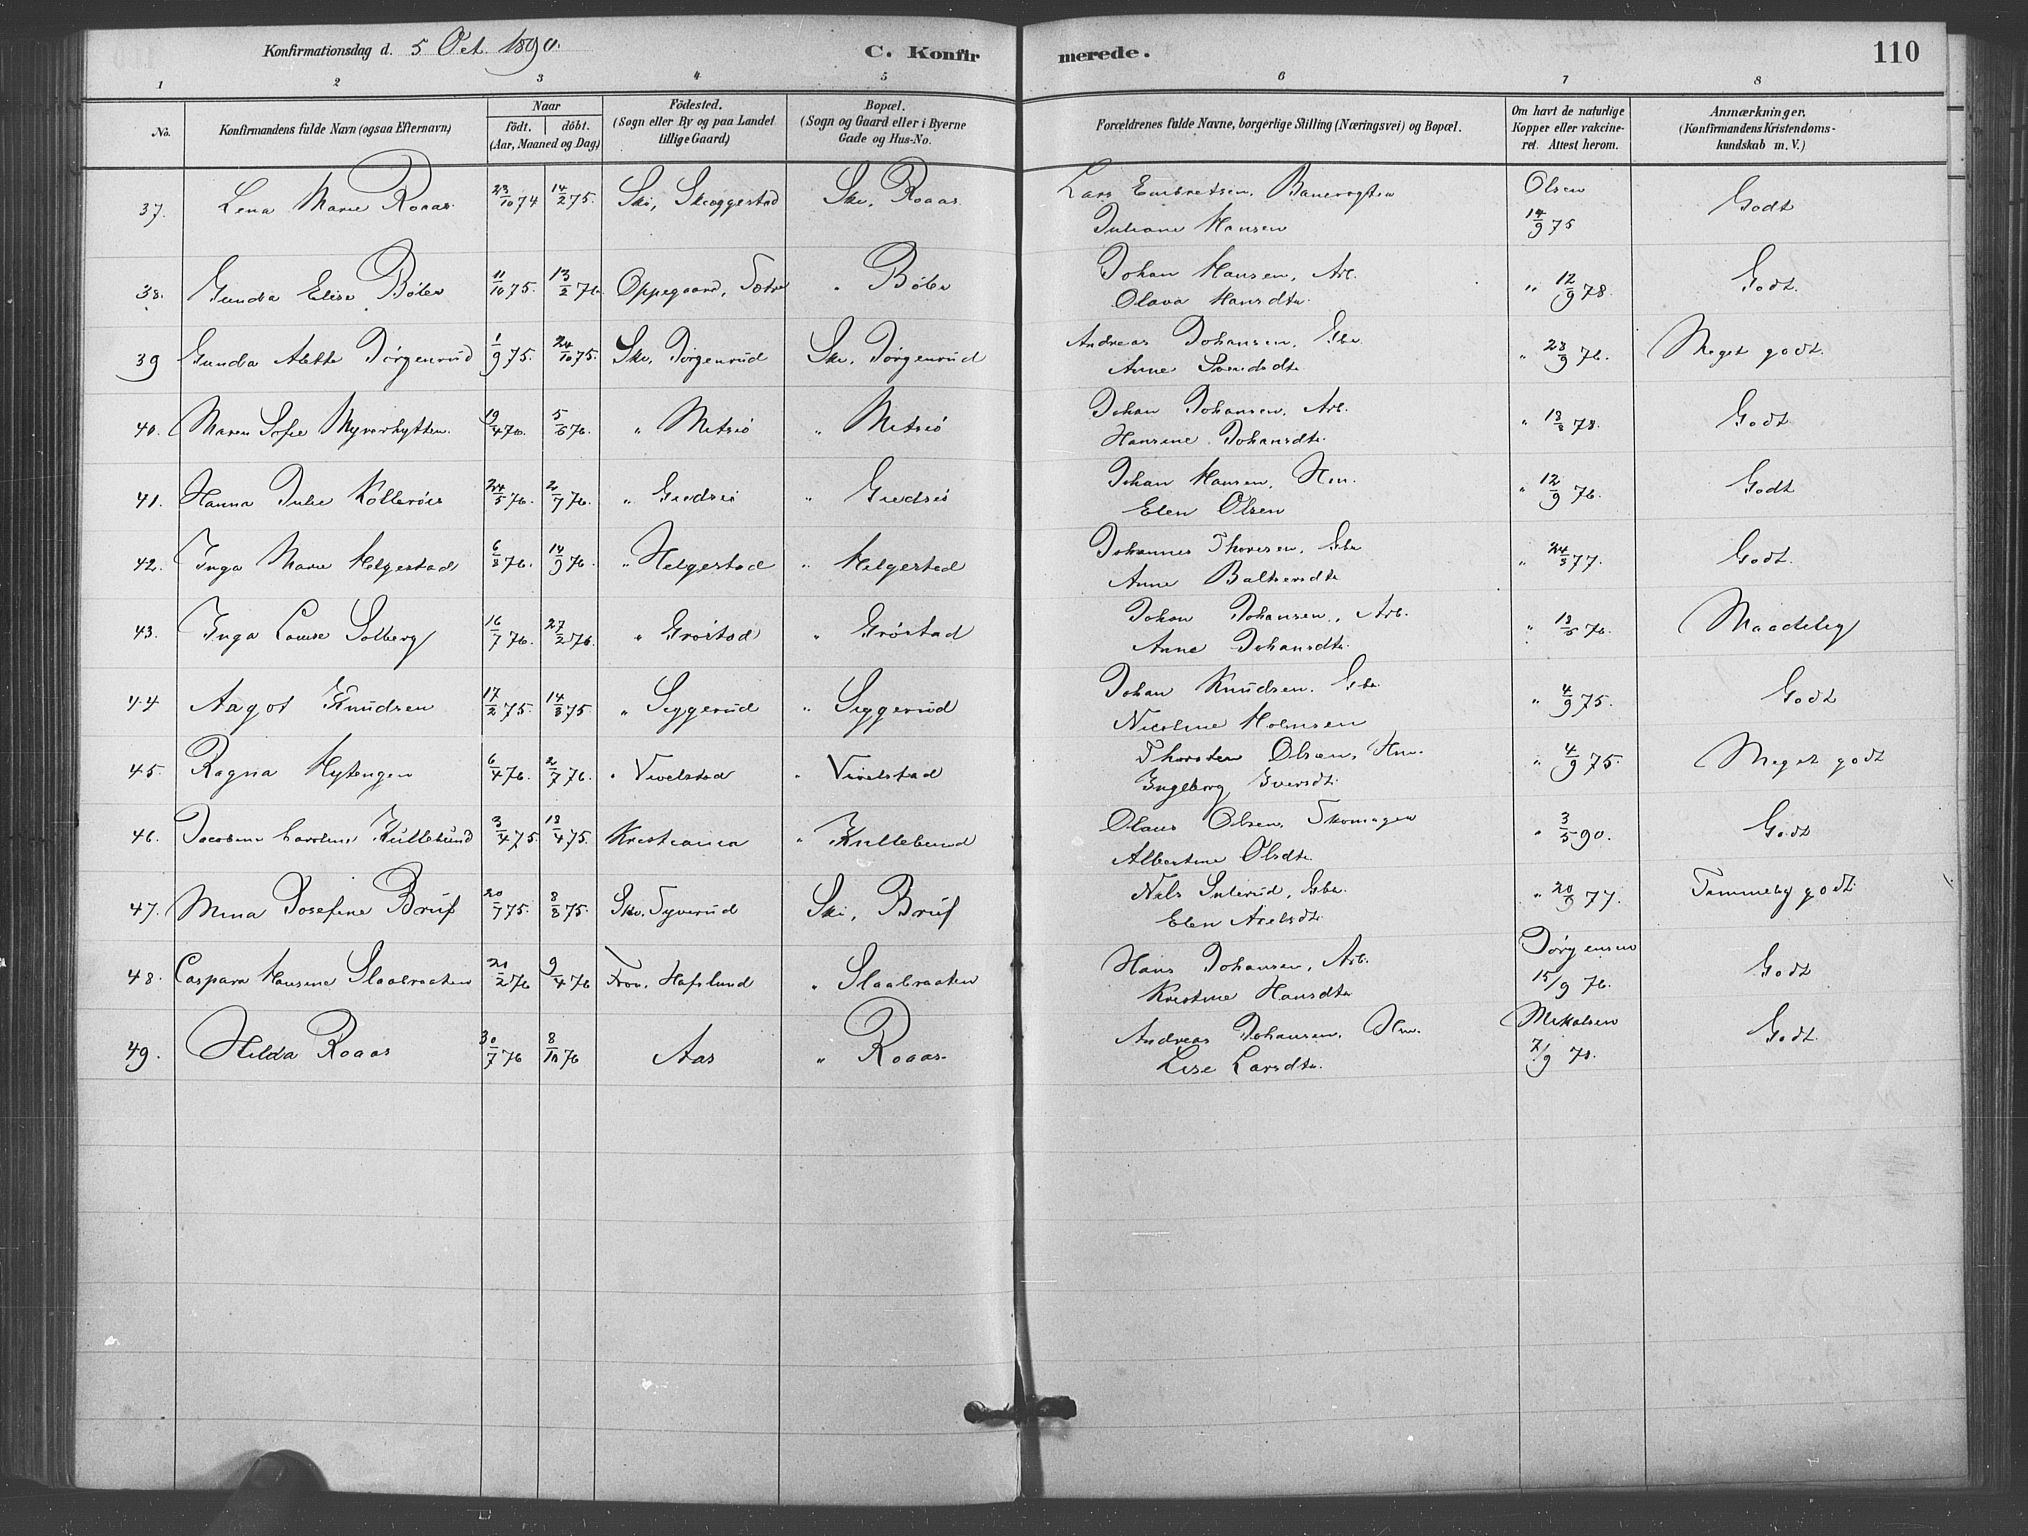 Konfirmationsdag d. 5 Oct. 1890. C. Konfirmerede. 110
1 2 3 4 5 6 7 8
No. Konfirmandens fulde Navn (ogsaa Efternavn) Naar födt. döbt. (Aar, Maaned og Dag) Födested. (Sogn eller By og paa Landet tillige Gaard) Bopæl. (Sogn og Gaard eller i Byerne Gade og Hus-No. Forældrenes fulde Navne, borgerlige Stilling (Næringsvei) og Bopæl. Om havt de naturlige Kopper eller vakcineret. Attest herom. Anmærkninger. (Konfirmandens Kristendomskundskab m. V.)
37. Lena Marie Roaas 23/10 74 14/2 75. Ski, Skoggestad Ski, Roaas. Lars Embretsen, Banevogter Olsen
Juliane Hansen 14/9 75 Godt
38. Gunda Elise Böler 11/10 75. 13/2 76 Oppegaard, " Böler Johan Hansen, Arb.
Olava Hansdtr. " 12/9 78. Godt.
39 Gunda Alette Jörgenrud 1/9 75. 24/10 75. Ski, Jörgenrud Ski, Jörgenrud Andreas Johansen, Gbr
Anne Svendsdtr " 28/9 76. Meget godt.
40. Maren Sofie Myrerhytten. 19/4 76. 5/6 76. " Metsiö " Metsiö Johan Johansen, Arb.
Hansine Johansdtr. " 78. Godt
41. Hanna Julie 24/5 76. 2/7 76. " Gjedsiö " Gjedsiö Johan Hansen, Hm.
Elen Olsen " 12/9 76. Godt
42. Inga Marie Helgestad 6/8 76. 14/9 76. " Helgestad " Helgestad Johannes Thoresen, Gbr
Anne Baltsersdtr " 24/3 77. Godt.
43. Inga Louise Solberg 16/7 76. 27/2 76. " Gröstad " Gröstad Johan Johansen, Arb.
Anne Johansdtr. " 18/5 76. Maadelig
44 Aagot Knudsen 17/2 75. 14/3 75 " Siggerud " Siggerud Johan Knudsen. Gbr
Nicoline Holmsen " 4/9 75. Godt
45. Ragna Hytengen 6/4 76. 2/7 76. " Vevelstad " Vevelstad Thorsten Olsen, Hm.
Ingeborg Iversdtr " 4/9 75. Meget godt
46. Jacobine Caroline Kullebund 3/4 75. 18/4 75. Kristiania " Kullebund Olaus Olsen, Skomager
Albertine Olsdtr. " 3/5 90. Godt
47. Mina Josefine Brüf 20/7 75. 8/8 75. Ski, Tyverud Ski, Brüf Nils Gbr.
Elen Axelsdtr " 20/9 77. Temmelig godt.
48. Caspara Hansine Slaabraaten 20/2 76 9/4 76 Hafslund " Slaabraaten Hans Johansen, Arb. Jörgensen
Kristine Hansdtr 15/9 76. Godt
49. Hilda Roaas 30/7 76 8/10 76 Aas " Roaas. Andreas Johansen, Hm. Mikalsen
Lise Larsdtr. 7/9 78. Godt.